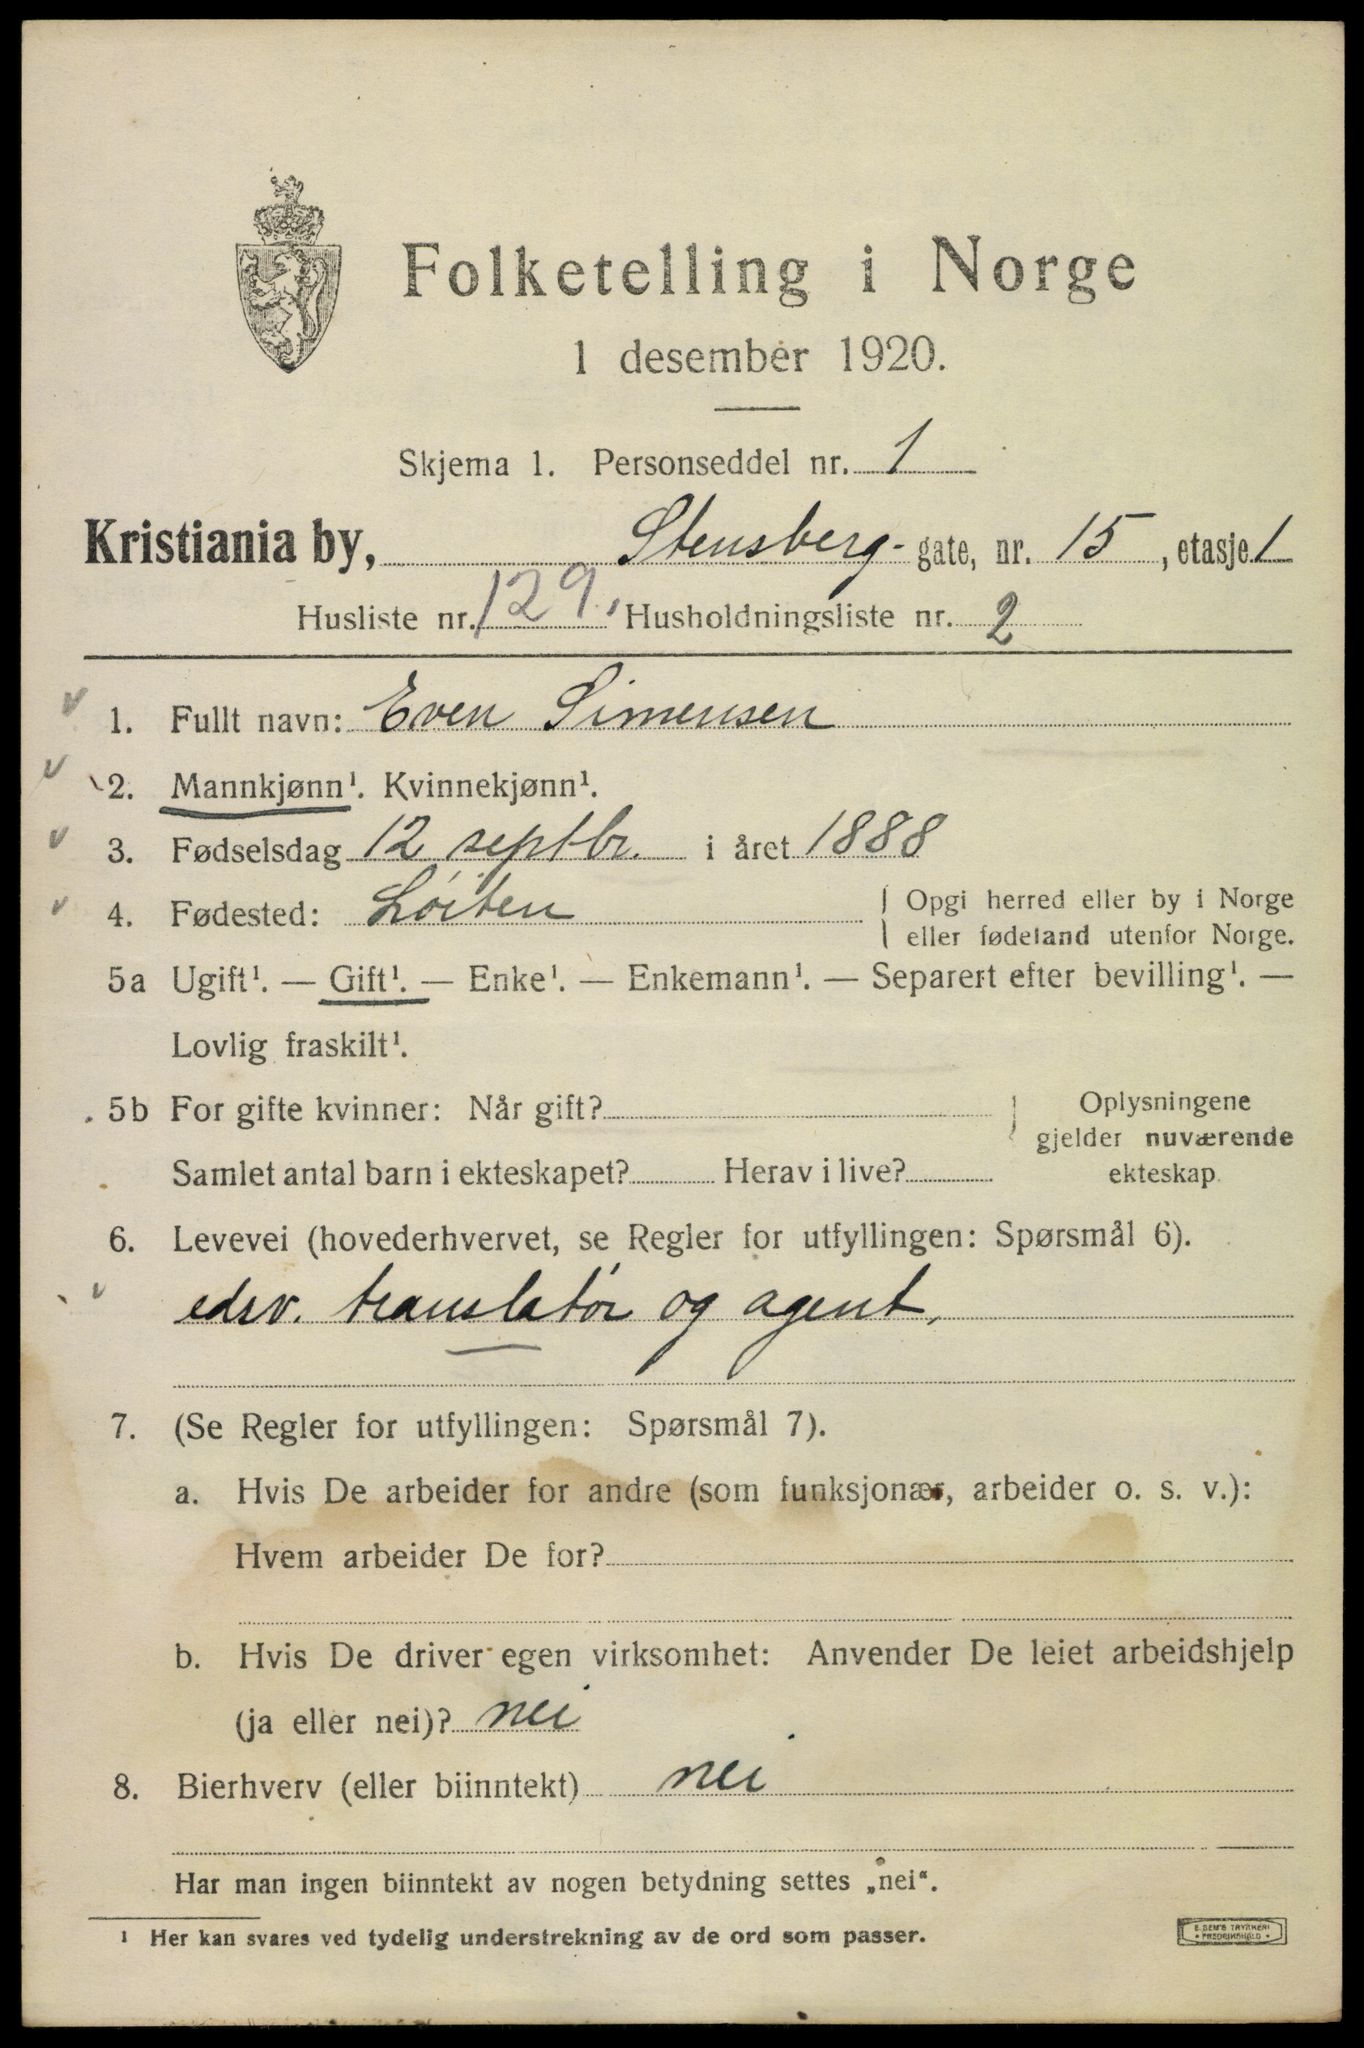 Folketelling i Norge
1 desember 1920.
Skjema 1. Personseddel nr. 1
Kristiania by, Stensberg- gate, nr. 15, etasje 1
Husliste nr. 129, Husholdningsliste nr. 2
1. Fullt navn: Even Simensen
2. Mannkjønn¹. Kvinnekjønn¹.
3. Fødselsdag 12 septbr. i året 1888
4. Fødested: Löiten { Opgi herred eller by i Norge
eller fødeland utenfor Norge.
5a Ugift¹. — Gift¹. — Enke¹. — Enkemann¹. — Separert efter bevilling¹. —
Lovlig fraskilt¹.
5b For gifte kvinner: Når gift? } Oplysningene
gjelder nuværende
Samlet antal barn i ekteskapet? Herav i live? ekteskap.
6. Levevei (hovederhvervet, se Regler for utfyllingen: Spørsmål 6).
edsv. translatör og agent,
7. (Se Regler for utfyllingen: Spørsmål 7).
a. Hvis De arbeider for andre (som funksjonær, arbeider o. s. v.):
Hvem arbeider De for?
b. Hvis De driver egen virksomhet: Anvender De leiet arbeidshjelp
(ja eller nei)? nei
8. Bierhverv (eller biinntekt) nei
Har man ingen biinntekt av nogen betydning settes „nei“.
¹ Her kan svares ved tydelig understrekning av de ord som passer.
E. SEM'S TRYKKERI
• FREDRIKSHALD •